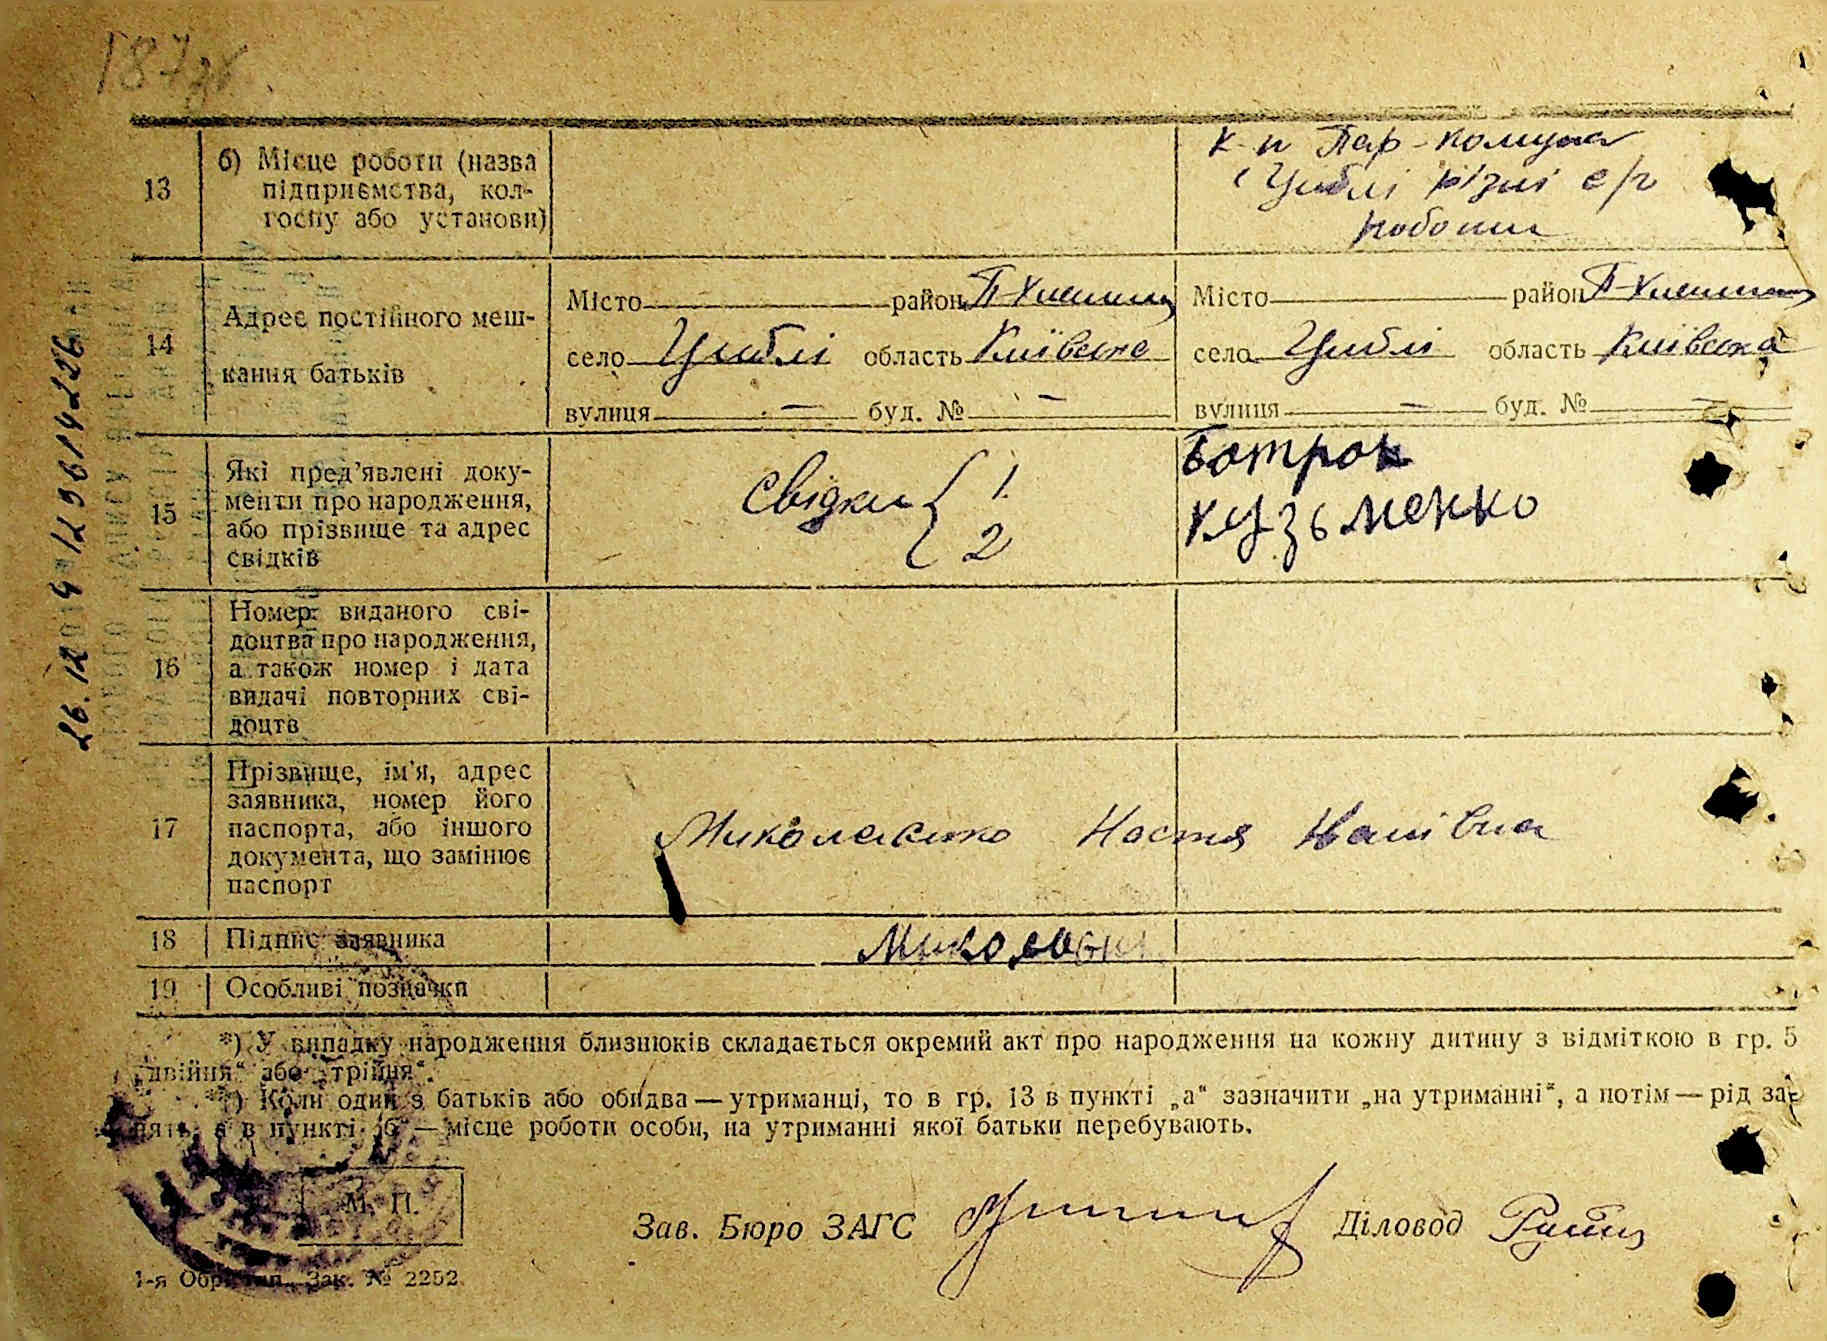 187зв
13
б) Місце роботи (назва
підприємства, кол-
госпу або установи)
к-п Пар-комуна
Циблі різні с/г
роботи
14
Адрес постійного меш-
кання батьків
Місто район П-Хмельниц
село Циблі область Київська
вулиця — буд. № —
Місто район П-Хмельниц
село Циблі область Київська
вулиця — буд. № —
15
Які пред’явлені доку-
менти про народження,
або прізвище та адрес
свідків
Свідки { 1.
2
Ботрок
Кузьменко
16
Номер виданого сві-
доцтва про народження,
а також номер і дата
видачі повторних сві-
доцтв
17
Прізвище, ім’я, адрес
заявника, номер його
паспорта, або іншого
документа, що замінює
паспорт
Миколаєнко Настя
18
Підпис заявника
19
Особливі позначки
*) У випадку народження близнюків складається окремий акт про народження на кожну дитину з відміткою в гр. 5
„двійня“ або „трійня“.
**) Коли один з батьків або обидва — утриманці, то в гр. 13 в пункті „а“ зазначити „на утриманні“, а потім — рід за-
нять, а в пункті „б“ — місце роботи особи, на утриманні якої батьки перебувають.
М. П.
Зав. Бюро ЗАГС
Діловод
1-я Обр. тип. Зак. № 2252